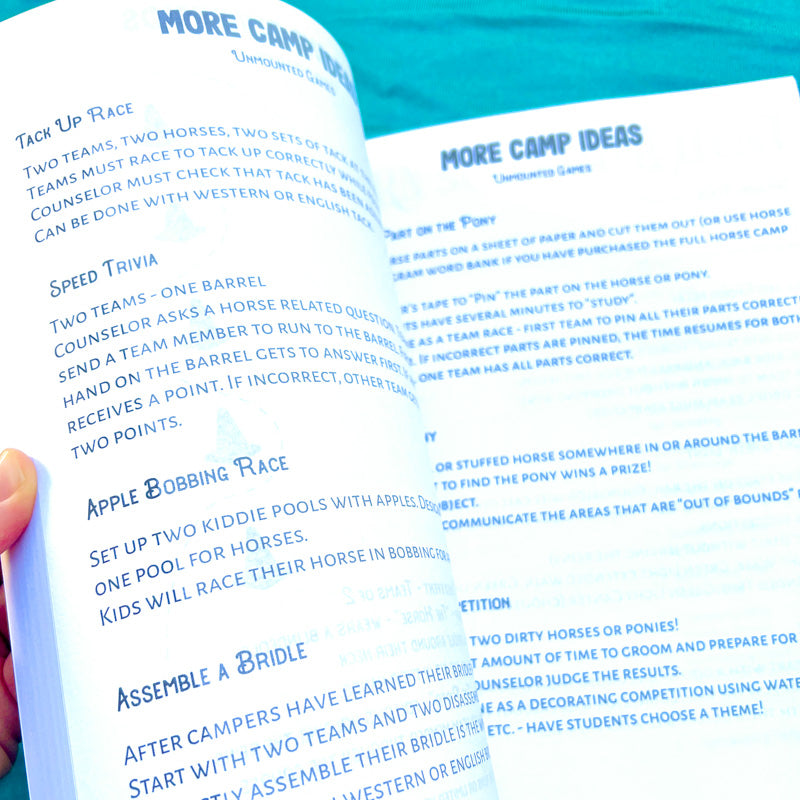 MORE CAMP IDEAS
UNMOUNTED GAMES
TACK UP RACE
TWO TEAMS, TWO HORSES, TWO SETS OF TACK AT
TEAMS MUST RACE TO TACK UP CORRECTLY WHILE
COUNSELOR MUST CHECK THAT TACK HAS BEEN
CAN BE DONE WITH WESTERN OR ENGLISH TACK.
SPEED TRIVIA
TWO TEAMS - ONE BARREL
COUNSELOR ASKS A HORSE RELATED QUESTION
SEND A TEAM MEMBER TO RUN TO THE BARREL
HAND ON THE BARREL GETS TO ANSWER FIRST.
RECEIVES A POINT. IF INCORRECT, OTHER TEAM
TWO POINTS.
APPLE BOBBING RACE
SET UP TWO KIDDIE POOLS WITH APPLES.
ONE POOL FOR HORSES.
KIDS WILL RACE THEIR HORSE IN BOBBING FOR
ASSEMBLE A BRIDLE
AFTER CAMPERS HAVE LEARNED THEIR
START WITH TWO TEAMS AND TWO
ASSEMBLE THEIR BRIDLE IS THE
WESTERN OR ENGLISH
MORE CAMP IDEAS
UNMOUNTED GAMES
PART ON THE PONY
PARTS ON A SHEET OF PAPER AND CUT THEM OUT (OR USE HORSE
WORD BANK IF YOU HAVE PURCHASED THE FULL HORSE CAMP
TAPE TO "PIN" THE PART ON THE HORSE OR PONY.
HAVE SEVERAL MINUTES TO "STUDY".
AS A TEAM RACE - FIRST TEAM TO PIN ALL THEIR PARTS
IF INCORRECT PARTS ARE PINNED, THE TIME RESUMES FOR
ONE TEAM HAS ALL PARTS CORRECT.
OR STUFFED HORSE SOMEWHERE IN OR AROUND THE
TO FIND THE PONY WINS A PRIZE!
COMMUNICATE THE AREAS THAT ARE "OUT OF BOUNDS"
TWO DIRTY HORSES OR PONIES!
AMOUNT OF TIME TO GROOM AND PREPARE FOR
JUDGE THE RESULTS.
AS A DECORATING COMPETITION USING
ETC. - HAVE STUDENTS CHOOSE A THEME!